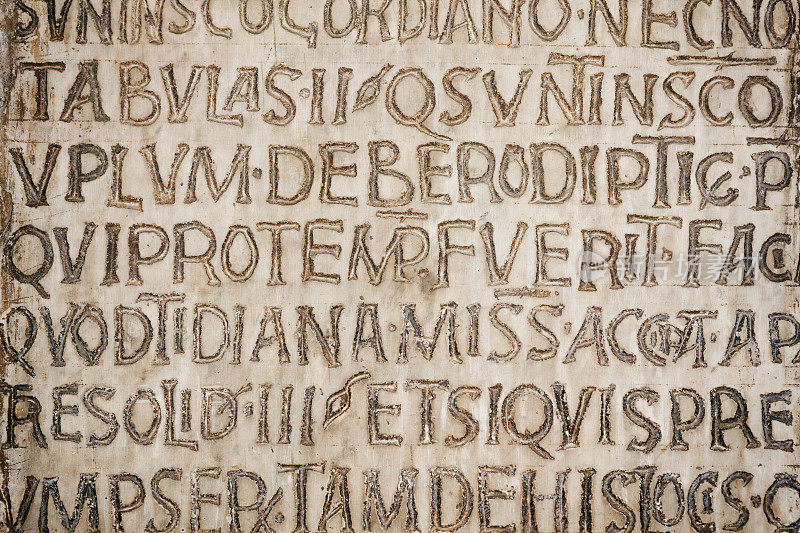 SVNINSCO GORDIANO · NECNO
TABVLAS · II · QSVNTINSCO
VPLVM · DEBERODIPTIC · P
QVIPROTEMPFVERITFAC
QVODTIDIANA · MISS · ACCATAP
TRESOLID · III · ETSIQVISPRE
VMPSER · TAMDEHISTOCS · Q